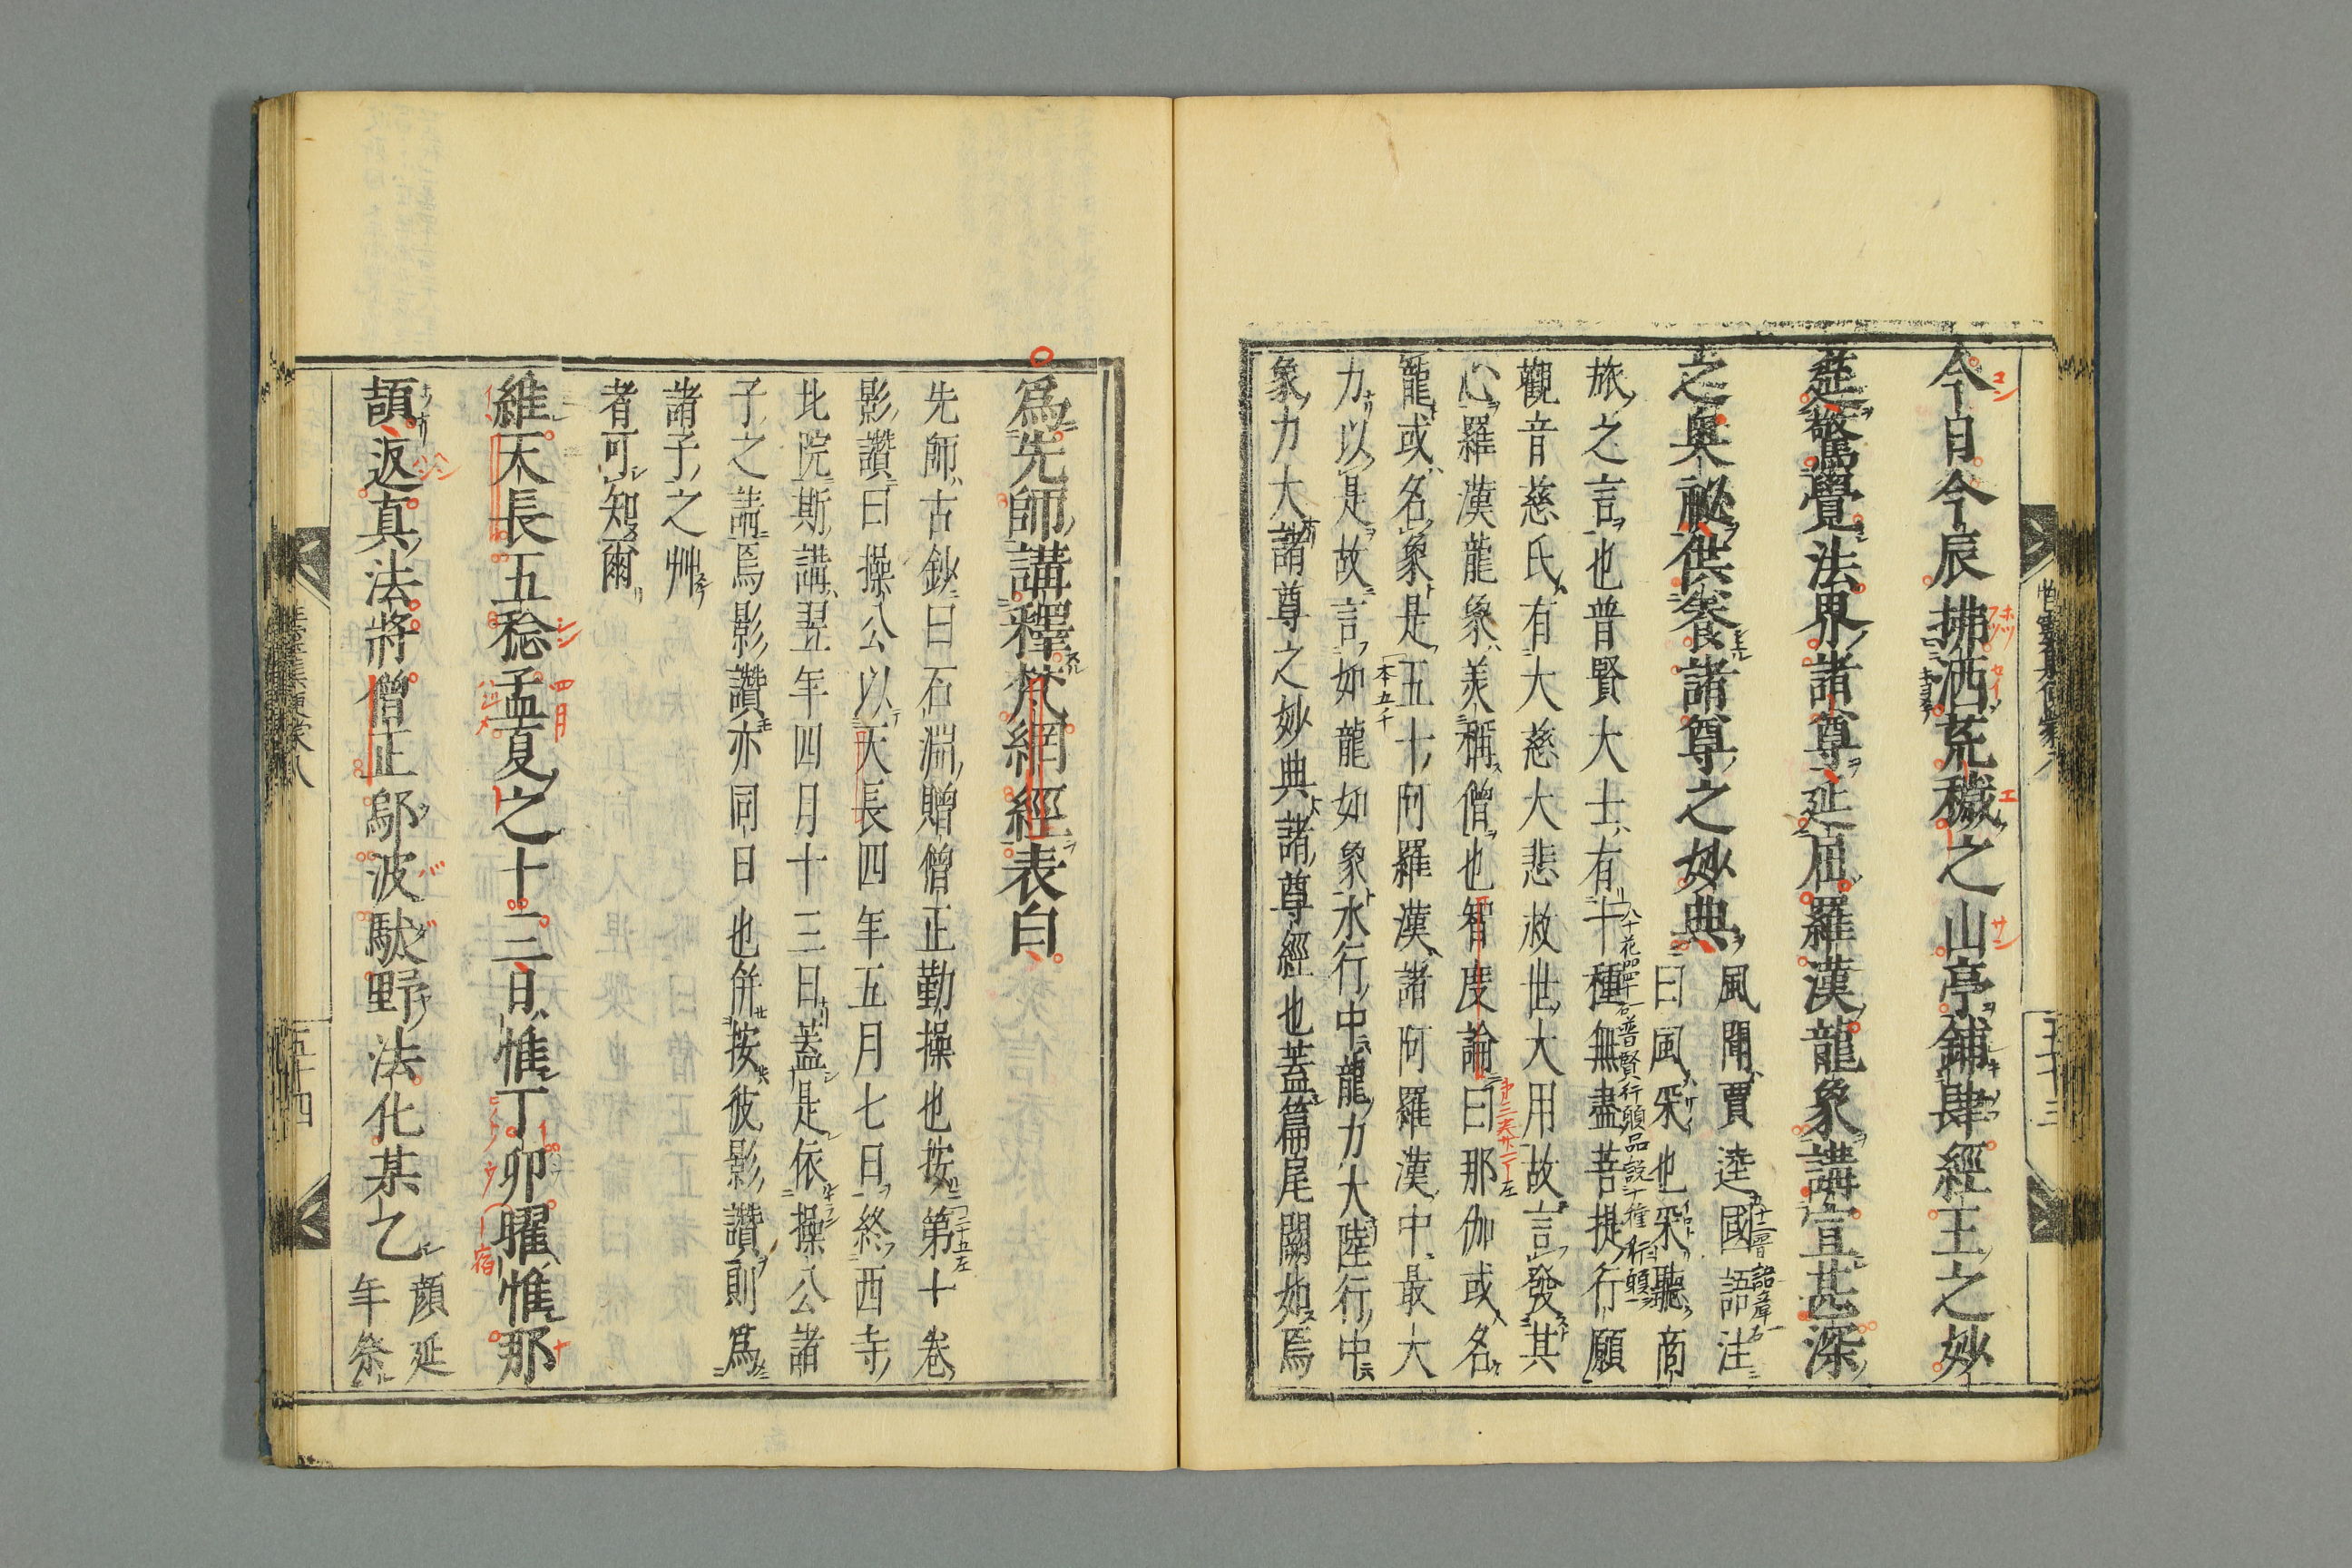 今日今辰拂洒荒穢之山亭鋪肆經王之妙
莚驚覺法界諸尊延屈羅漢龍象講宣甚深
之奧祕供養諸尊之妙典
風聞賈逵國語注
曰風采也采聽商
旅之言也普賢大士有十種無盡菩提行願
觀音慈氏有大慈大悲救世大用故言發其
心羅漢龍象美稱僧也智度論曰那伽或名
龍或名象是五十阿羅漢諸阿羅漢中最大
力以是故言如龍如象水行中龍力大陸行中
象力大諸尊之妙典諸尊經也蓋篇尾闕如焉
五十三
爲先師講釋梵網經表白
先師古鈔曰石淵贈僧正勤操也按第十卷
影讚曰操公以天長四年五月七日終西寺
北院斯講翌年四月十三日蓋是依操公諸
子之請焉影讚亦同日也併按彼影讚則爲
諸子之艸
者可知爾
維天長五稔孟夏之十三日惟丁卯曜惟那
頡返真法將僧正鄔波馱野法化某乙
顏延
年祭
五十四